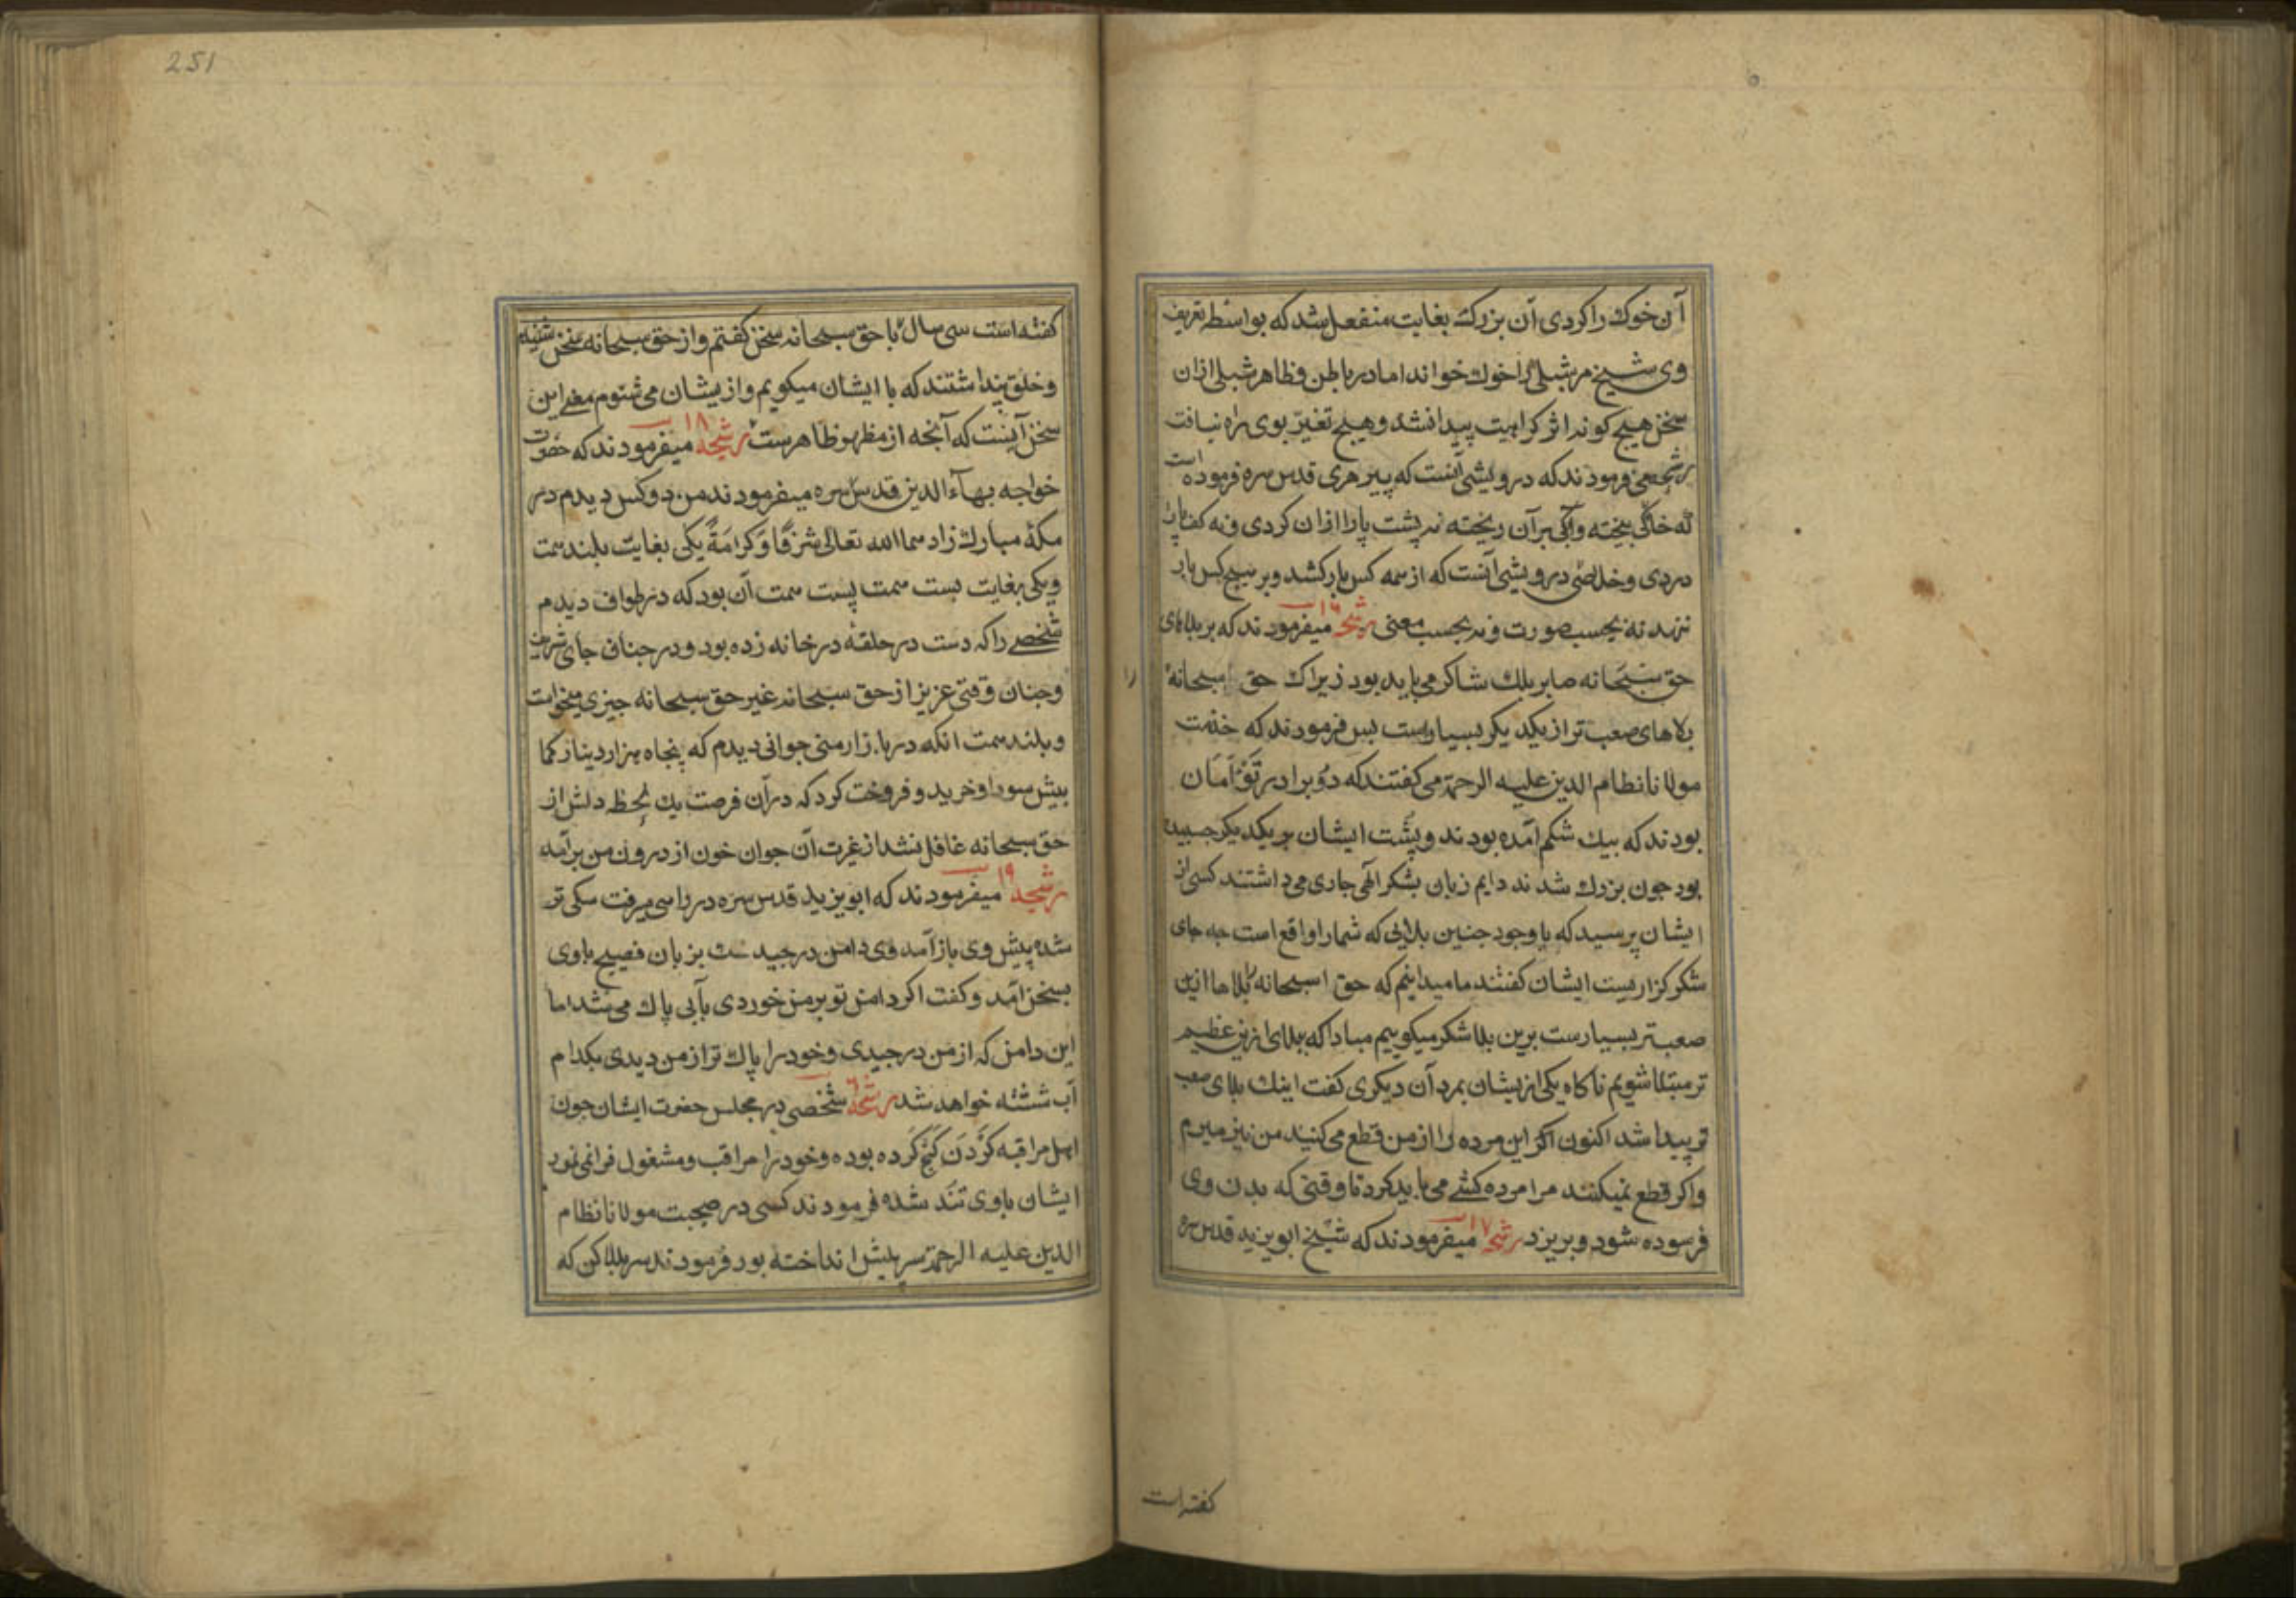 آن خوك را كردى آن بزرك بغايت منفعل شد كه بواسطه تعريف
وى شيخ مر شبلى را خوك خواند اما در باطن و ظاهر شبلى ازان
سخن هيچ كونه اثر كراهيت پيدا نشد و هيچ تغير بوى راه نيافت
رشحه مى فرمودند كه درويشى آنست كه پير هرى قدس سره فرموده است
كه خاكى بيخته و آبى بر آن ريخته نه پشت پا را ازان كردى و نه كف پا را
دردى و خلاصى درويشى آنست كه از همه كس بار كشد و بر هيچ كس بار
ننهد نه بحسب صورت و نه بحسب معنى رشحه ١٦ ميفرمودند كه بر بلاهاى
حق سبحانه صابر بلك شاكر مى بايد بود زيراك حق سبحانه را
بلاهاى صعب تر از يكديكر بسيارست پس فرمودند كه خدمت
مولانا نظام الدين عليه الرحمة مى كفتند كه دو برادر توأمان
بودند كه بيك شكم آمده بودند و پشت ايشان بر يكديكر چسبيده
بود چون بزرك شدند دايم زبان بشكر الهى جارى مى داشتند كسى از
ايشان پرسيد كه با وجود چنين بلايى كه شما را واقع است چه جاى
شكر كزاريست ايشان كفتند ما ميدانيم كه حق سبحانه را بلاها ازين
صعبتر بسيارست برين بلا شكر ميكوييم مبادا كه ببلاى ازين عظيم
تر مبتلا شويم ناكاه يكى ازيشان بمرد آن ديكرى كفت اينك بلاى صعب
تر پيدا شد اكنون اكر اين مرده را از من قطع مى كنيد من نيز ميرم
و اكر قطع نميكنند مرا مرده كشى مى بايد كرد تا وقتى كه بدن وى
فرسوده شود و بريزد رشحه ١٧ ميفرمودند كه شيخ ابو يزيد قدس سره
كفته است
251
كفته است سى سال با حق سبحانه سخن كفتم و از حق سبحانه سخن شنيدم
و خلق پنداشتند كه با ايشان ميكويم و ازيشان مى شنوم معنى اين
سخن آنست كه آنچه از مظهر ظاهرست رشحه ١٨ ميفرمودند كه حضرت
خواجه بهاء الدين قدس سره ميفرمودند من دو كس ديدم در
مكۀ مبارك زادهما الله تعالى شرفًا و كرامةً يكى بغايت بلند همت
و يكى بغايت پست همت پست همت آن بود كه در طواف ديدم
شخصى را كه دست در حلقۀ در خانه زده بود و در چنان جاى شريف
و چنان وقتى عزيز از حق سبحانه غير حق سبحانه چيزى ميخواست
و بلند همت آنكه در بازار منى جوانى ديدم كه پنجاه هزار دينار كما
بيش سودا و خريد و فروخت كرد كه در آن فرصت يك لحظه دلش از
حق سبحانه غافل نشد از غيرت آن جوان خون از درون من برآمد
رشحه ١٩ ميفرمودند كه ابو يزيد قدس سره در راهى ميرفت سكى تر
شده پيش وى باز آمد وى دامن درچيد سك بزبان فصيح با وى
بسخن آمد و كفت اكر دامن تو بر من خوردى بآبى پاك مى شد اما
اين دامن كه از من درچيدى و خود را پاك تر از من ديدى بكدام
آب شسته خواهد شد رشحه شخصى در مجلس حضرت ايشان چون
اهل مراقبه كردن كج كرده بوده و خود را مراقب و مشغول فرا مى نمود
ايشان با وى تند شده فرمودند كسى در صحبت مولانا نظام
الدين عليه الرحمة سر پيش انداخته بود فرمودند سر بالا كن كه